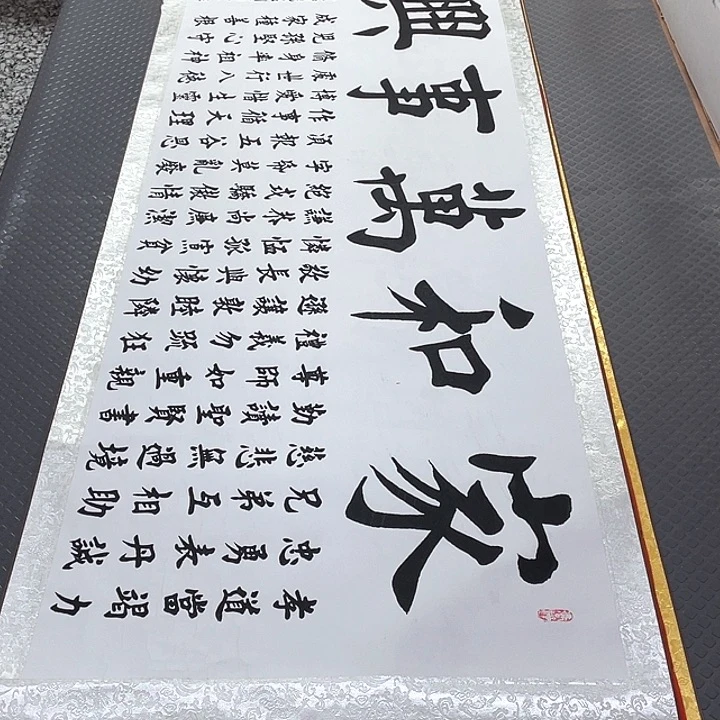 家和萬事興
孝道當竭力
忠勇表丹誠
兄弟互相助
慈悲無過境
勤讀聖賢書
尊師如重親
禮義勿疏狂
遜讓敦睦鄰
敬長與懷幼
憐恤孤寡貧
謙恭尚廉潔
絕戒驕傲情
字紙莫亂廢
須報五谷恩
作事循天理
博愛惜生靈
處世行八德
修身率祖神
兒孫堅心守
成家種善根